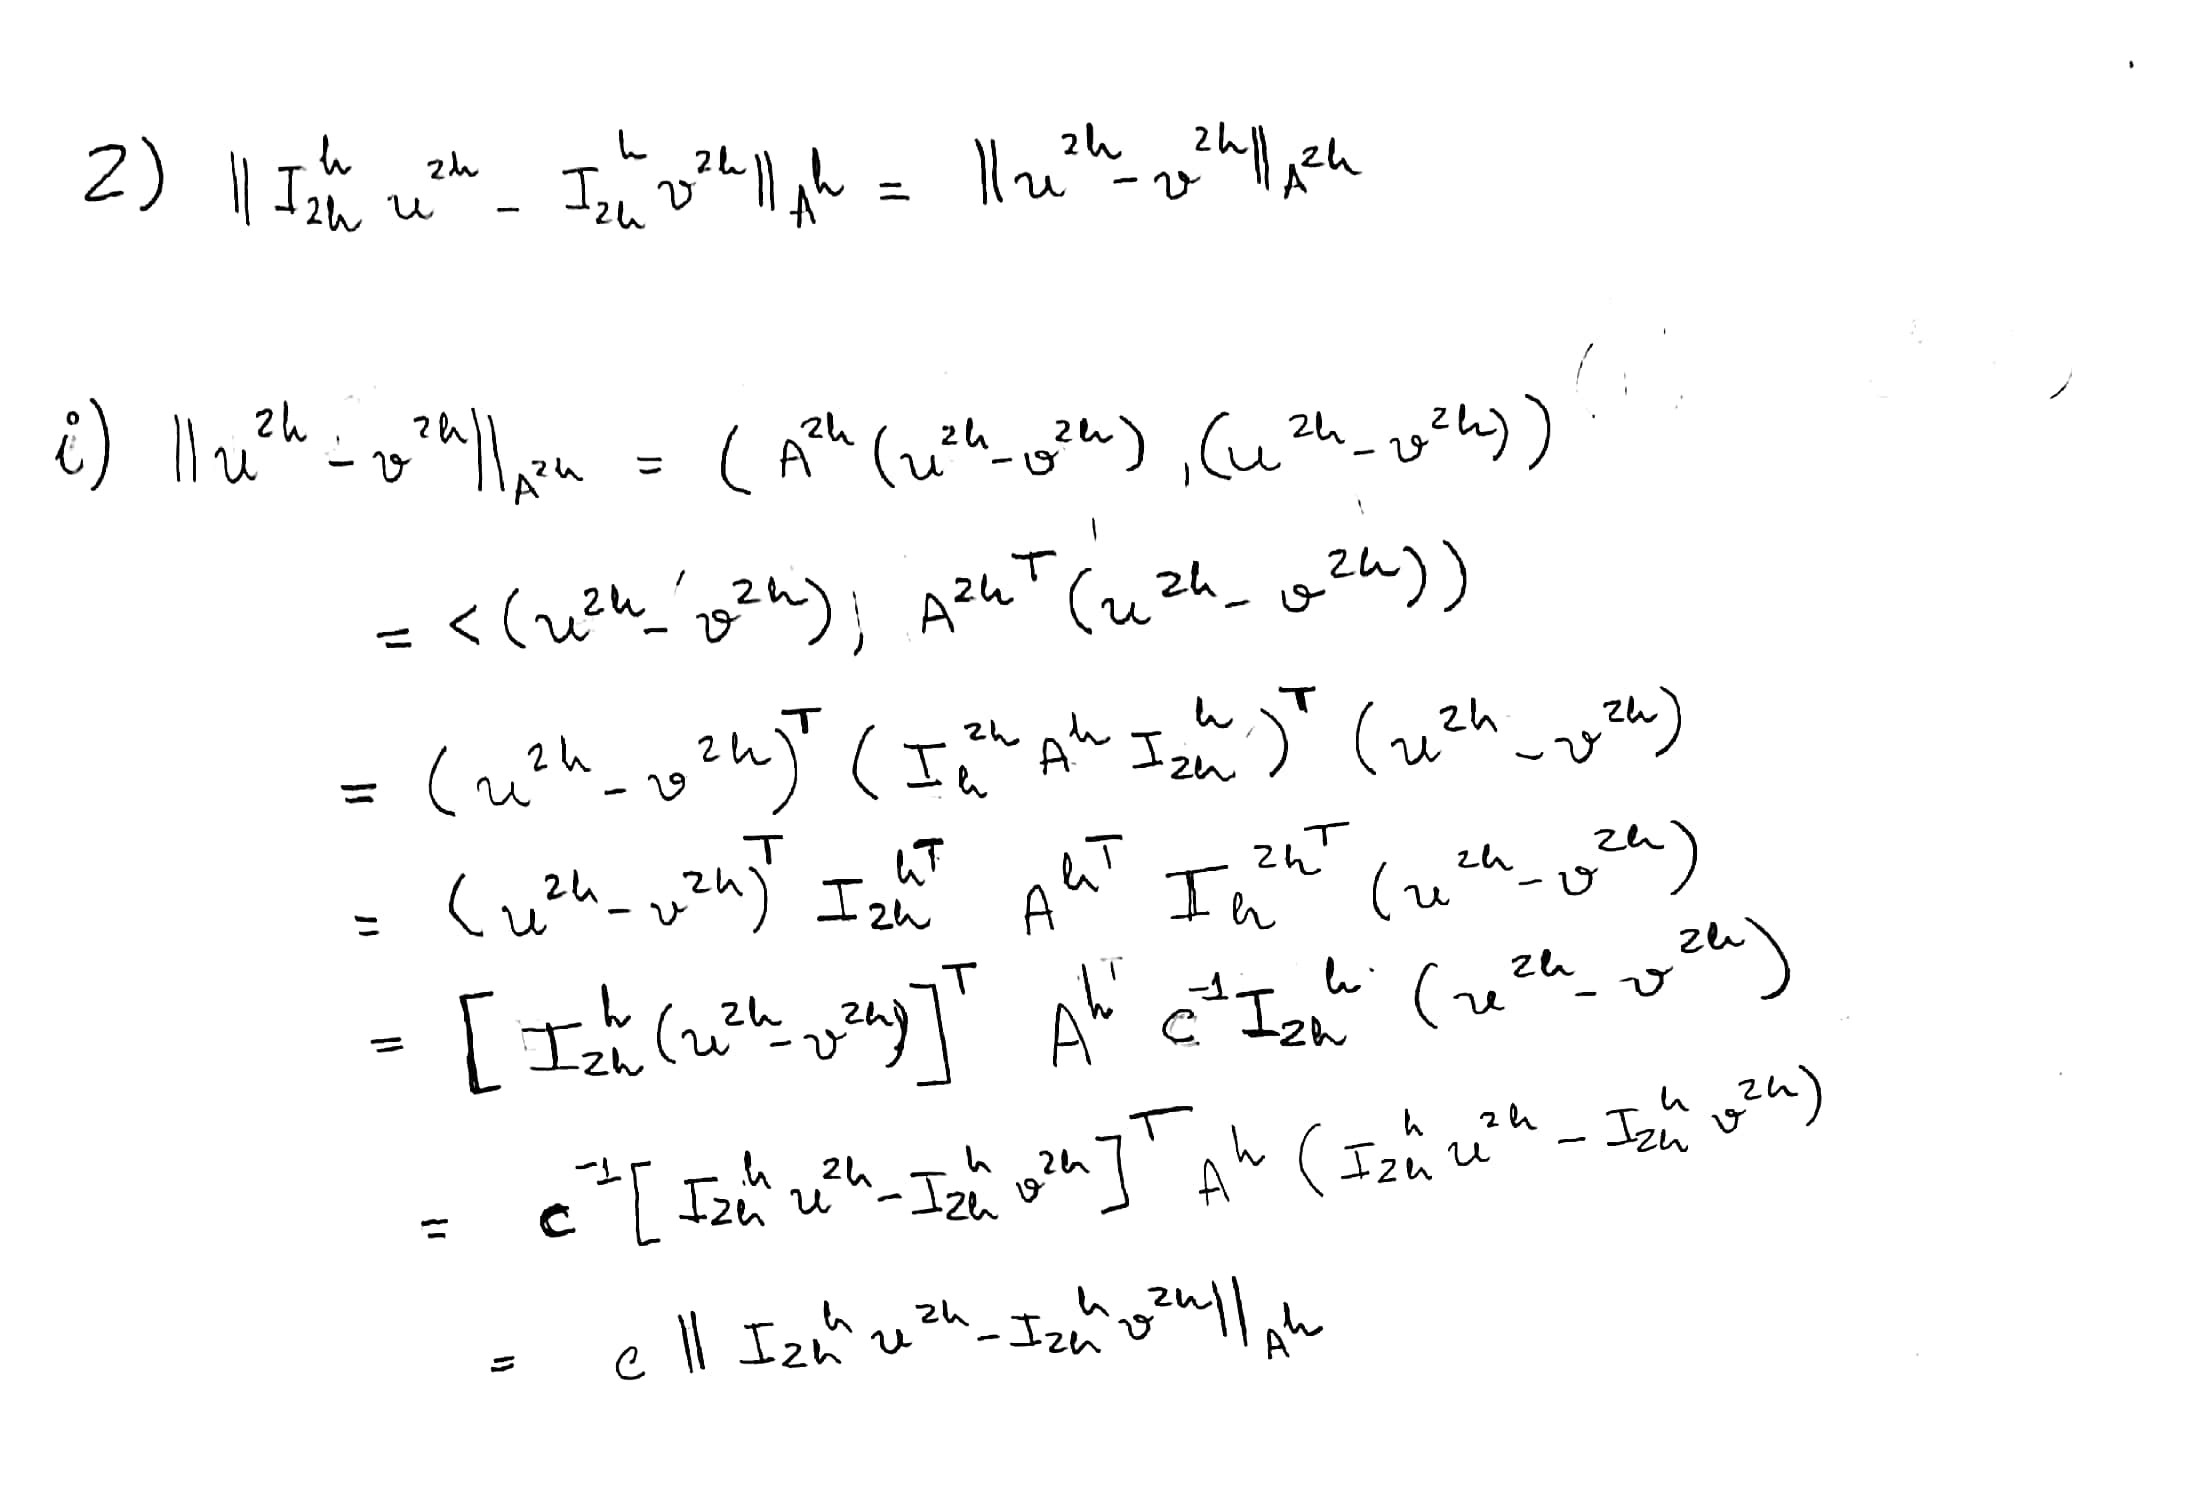 2) ‖ I_{2h}^{h} u^{2h} - I_{2h}^{h} v^{2h} ‖_{A^h} = ‖ u^{2h} - v^{2h} ‖_{A^{2h}}
i) ‖ u^{2h} - v^{2h} ‖_{A^{2h}} = ( A^{2h} (u^{2h} - v^{2h}) , (u^{2h} - v^{2h}) )
= < (u^{2h} - v^{2h}) , A^{2h T} (u^{2h} - v^{2h}) )
= (u^{2h} - v^{2h})^T ( I_h^{2h} A^h I_{2h}^h )^T (u^{2h} - v^{2h})
= (u^{2h} - v^{2h})^T I_{2h}^{h T} A^{h T} I_h^{2h T} (u^{2h} - v^{2h})
= [ I_{2h}^h (u^{2h} - v^{2h}) ]^T A^{h T} c^{-1} I_{2h}^h (u^{2h} - v^{2h})
= c^{-1} [ I_{2h}^h u^{2h} - I_{2h}^h v^{2h} ]^T A^h ( I_{2h}^h u^{2h} - I_{2h}^h v^{2h} )
= c ‖ I_{2h}^h u^{2h} - I_{2h}^h v^{2h} ‖_{A^h}